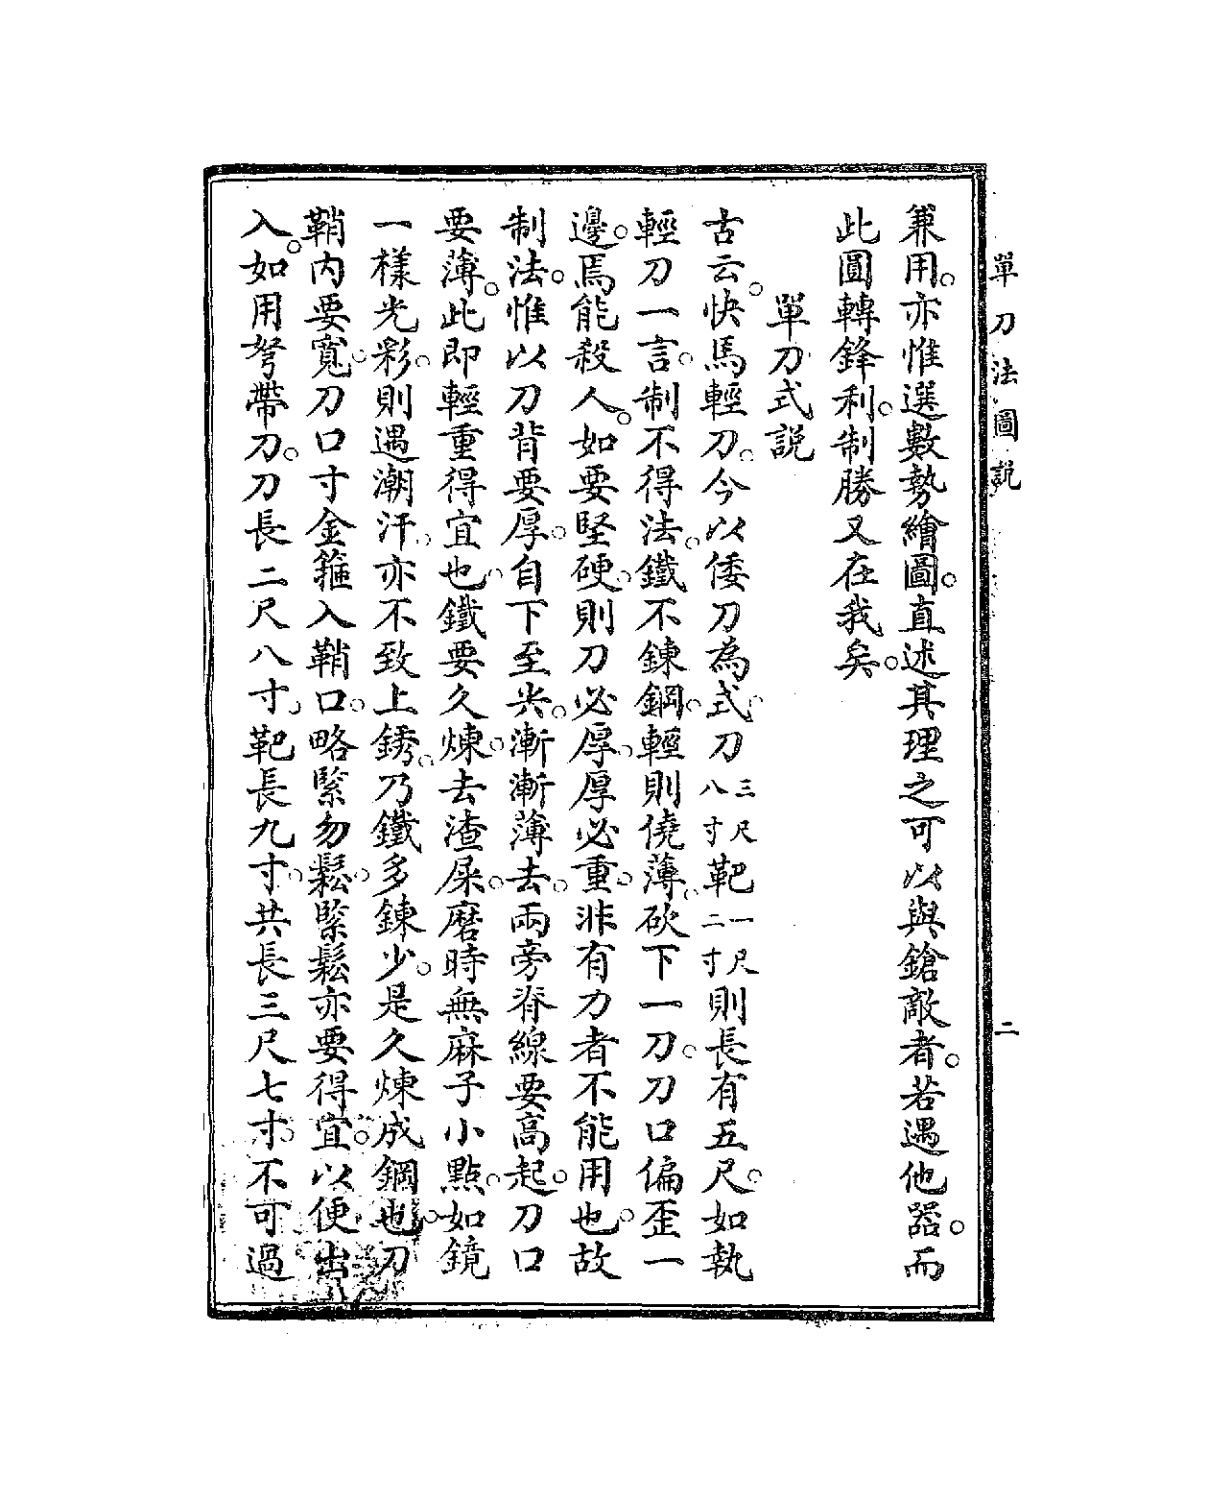 單刀法圖說
二
兼用。亦惟選數勢繪圖。直述其理之可以與鎗敵者。若遇他器。而
此圓轉鋒利。制勝又在我矣。
單刀式說
古云。快馬輕刀。今以倭刀為式。刀三尺八寸靶一尺二寸則長有五尺。如執
輕刀一言。制不得法。鐵不鍊鋼。輕則僥薄。砍下一刀。刀口偏歪一
邊。焉能殺人。如要堅硬。則刀必厚。厚必重。非有力者不能用也。故
制法。惟以刀背要厚。自下至尖。漸漸薄去。兩旁脊線要高起。刀口
要薄。此即輕重得宜也。鐵要久煉。去渣屎。磨時無麻子小點。如鏡
一樣光彩。則遇潮汗。亦不致上銹。乃鐵多鍊少。是久煉成鋼也。刀
鞘內要寬。刀口寸金箍入鞘口。略緊勿鬆。緊鬆亦要得宜。以便出
入。如用弩帶刀。刀長二尺八寸。靶長九寸。共長三尺七寸。不可過